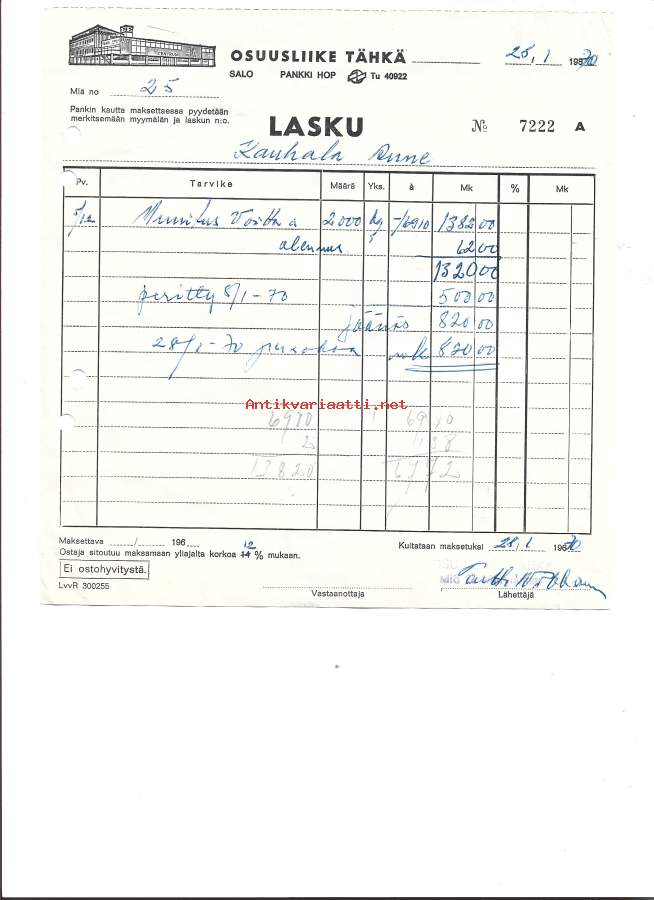 OSUUSLIIKE TÄHKÄ 28/1 1970
SALO PANKKI HOP Tu 40922
Mla no 25
Pankin kautta maksettaessa pyydetään
merkitsemään myymälän ja laskun n:o.
LASKU № 7222 A
Kauhala Rune
Pv. Tarvike Määrä Yks. à Mk % Mk
5/12 Voitto 2000 kg -/6910 1382 00
alennus 62 00
1320 00
peritty 8/1-70 500 00
jäänös 820 00
28/1-70 mk 820 00
Antikvariaatti.net
6910 6910
2 138
13820 6772
Maksettava / 196
Ostaja sitoutuu maksamaan yliajalta korkoa 12 % mukaan.
Kuitataan maksetuksi 28/1 1970
Ei ostohyvitystä.
LvvR 300255
Vastaanottaja
Lähettäjä